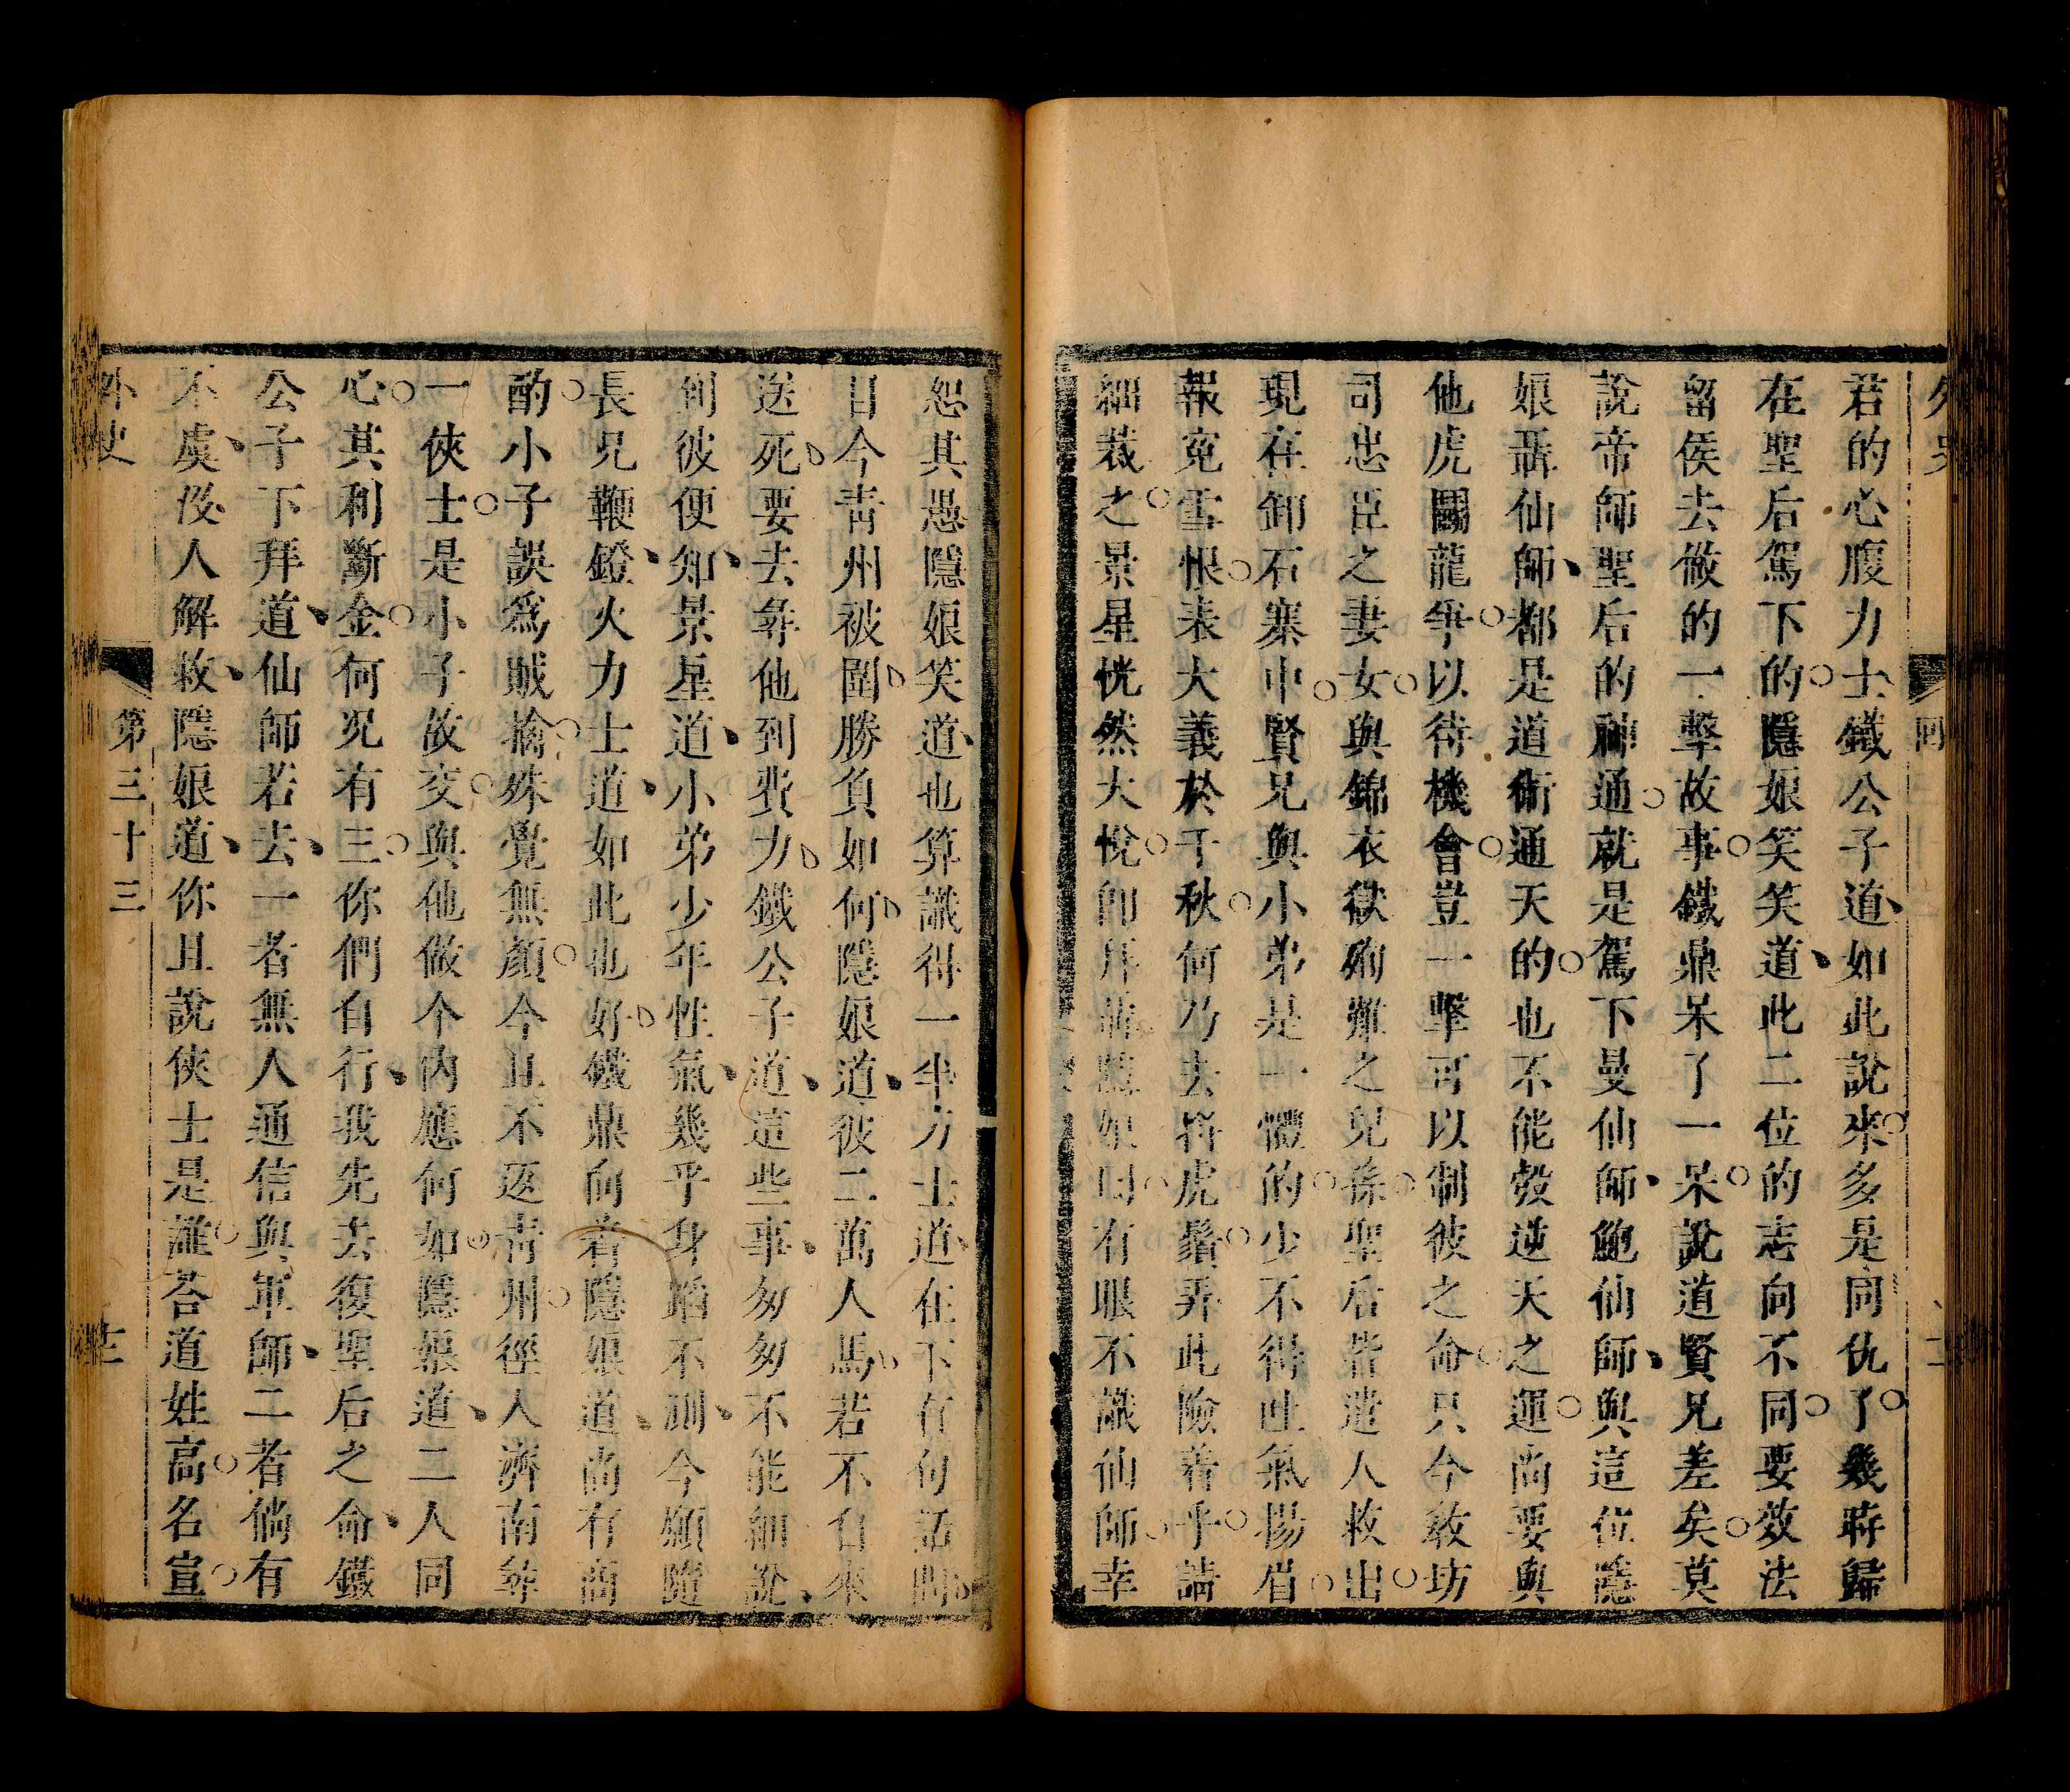 君的心腹力士鐵公子道如此說來多是同仇了幾時歸
在聖后駕下的隱娘笑笑道此二位的志向不同要效法
留侯去做的一擊故事鐵鼎呆了一呆說道賢兄差矣莫
說帝師聖后的神通就是駕下曼仙師鮑仙師與這位隱
娘聶仙師都是道術通天的也不能彀逆天之運尚要與
他虎鬭龍爭以待機會豈一擊可以制彼之命只今敎坊
司忠臣之妻女與錦衣獄殉難之兒孫聖后皆遣人救出
現在卸石寨中賢兄與小弟是一體的少不得吐氣揚眉
報寃雪恨表大義於千秋何乃去捋虎鬚弄此險着乎請
細裁之景星恍然大悅即拜隱娘曰有眼不識仙師幸
恕其愚隱娘笑道也算識得一半力士道在下有句話問
目今青州被圍勝負如何隱娘道彼二萬人馬若不自來
送死要去尋他到費力鐵公子道這些事匆匆不能細說
到彼便知景星道小弟少年性氣幾乎身蹈不測今願隨
長兄鞭鐙火力士道如此也好鐵鼎向着隱娘道尚有商
酌小子誤爲賊擒殊覺無顏今且不返青州徑入濟南尋
一俠士是小子故交與他做个內應何如隱娘道二人同
心其利斷金何況有三你們自行我先去復聖后之命鐵
公子下拜道仙師若去一者無人通信與軍師二者倘有
不虞沒人解救隱娘道你且說俠士是誰答道姓高名宣
外史
第三十三